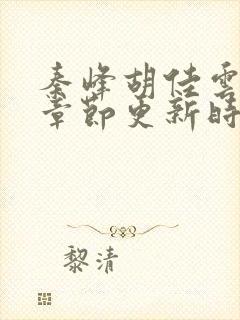 秦峰胡佳雲
章節更新時
黎清